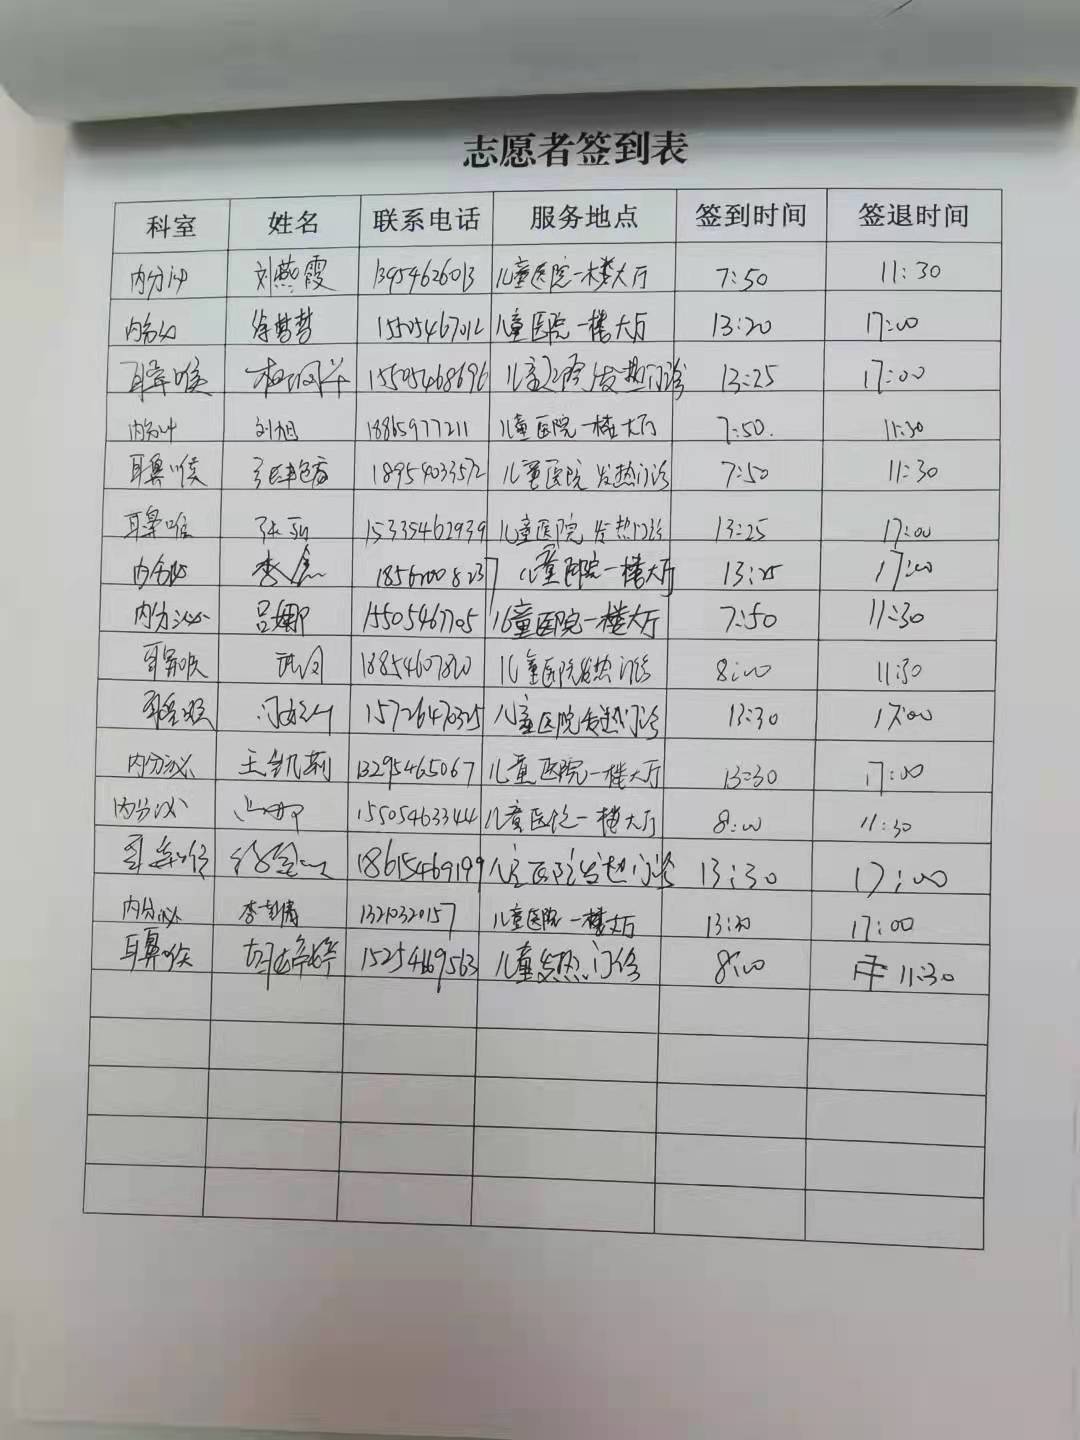 志愿者签到表
科室 姓名 联系电话 服务地点 签到时间 签退时间
内分泌 刘燕霞 13954626013 儿童医院一楼大厅 7:50 11:30
内分泌 徐哲哲 15505467012 儿童医院一楼大厅 13:20 17:00
耳鼻喉 15505468696 儿童医院发热门诊 13:25 17:00
内分泌 刘旭 18865977211 儿童医院一楼大厅 7:50. 11:30
耳鼻喉 18954033572 儿童医院 发热门诊 7:50 11:30
耳鼻喉 15335462939 儿童医院 发热门诊 13:25 17:00
内分泌 李 儿童医院一楼大厅 13:25 17:00
内分泌 吕娜 15505467705 儿童医院一楼大厅 7:50 11:30
耳鼻喉 武 18854607820 儿童医院发热门诊 8:00 11:30
耳鼻喉 15726470325 儿童医院发热门诊 13:30 17:00
内分泌 王凯莉 13295465067 儿童医院一楼大厅 13:30 17:00
内分泌 15505463344 儿童医院一楼大厅 8:00 11:30
耳鼻喉 18615469199 儿童医院发热门诊 13:30 17:00
内分泌 李彩倩 13210320157 儿童医院一楼大厅 13:20 17:00
耳鼻喉 胡婷婷 15254669563 儿童发热门诊 8:00 11:30